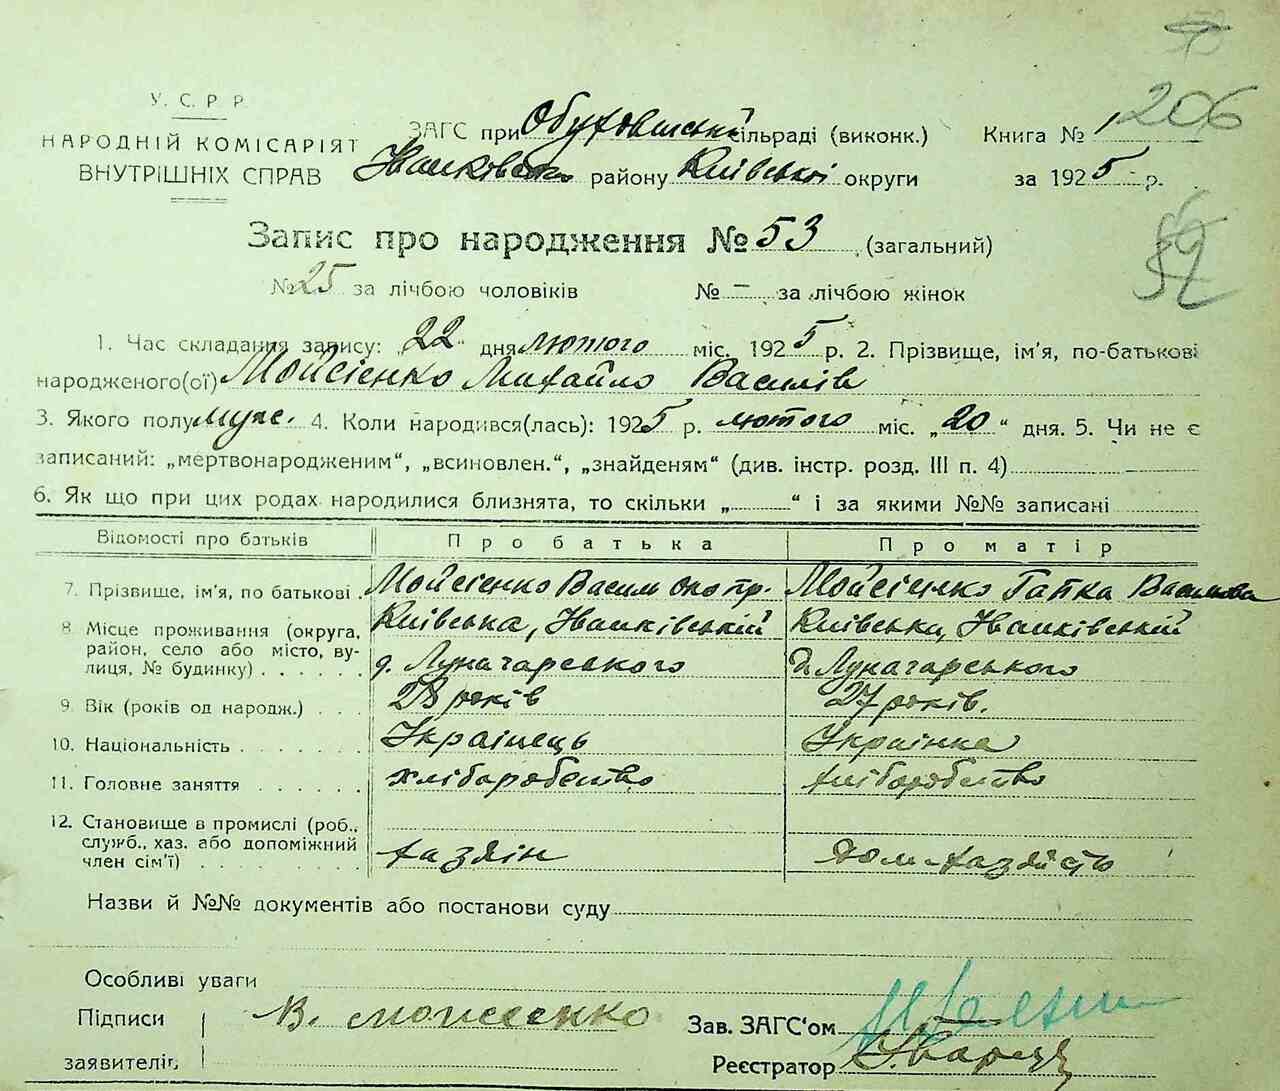 206
У. С. Р. Р.
НАРОДНІЙ КОМІСАРІЯТ
ВНУТРІШНІХ СПРАВ
ЗАГС при Обуховицькій сільраді (виконк.) Книга № 1
Іванковськ району Київської округи за 1925 р.
52
Запис про народження № 53 (загальний)
№ 25 за лічбою чоловіків № – за лічбою жінок
1. Час складання запису: „22“ дня лютого міс. 1925 р. 2. Прізвище, ім'я, по-батькові
народженого(ої) Мойсієнко Михайло Василів
3. Якого полу муж. 4. Коли народився(лась): 1925 р. лютого міс. „20“ дня. 5. Чи не є
записаний: „мертвонародженим“, „всиновлен.“, „знайденям“ (див. інстр. розд. III п. 4)
6. Як що при цих родах народилися близнята, то скільки „ “ і за якими №№ записані
Відомості про батьків Про батька Про матір
7. Прізвище, ім'я, по батькові . Мойсієнко Васил Мойсієнко Гапка Василова
8. Місце проживання (округа, Київська, Іванківський Київська, Іванківський
район, село або місто, ву-
лиця, № будинку) . . . . . . д. Луначарського д. Луначарського
9. Вік (років од народж.) . . . 28 років 27 років.
10. Національність . . . . . . . Українець Українка
11. Головне заняття . . . . . . хліборобство хліборобство
12. Становище в промислі (роб.,
служб., хаз. або допоміжний
член сім'ї) . . . . . . . . хазяін дом-хазяйство
Назви й №№ документів або постанови суду
Особливі уваги
Підписи В. Мойсеенко Зав. ЗАГС‘ом
заявителів Реєстратор